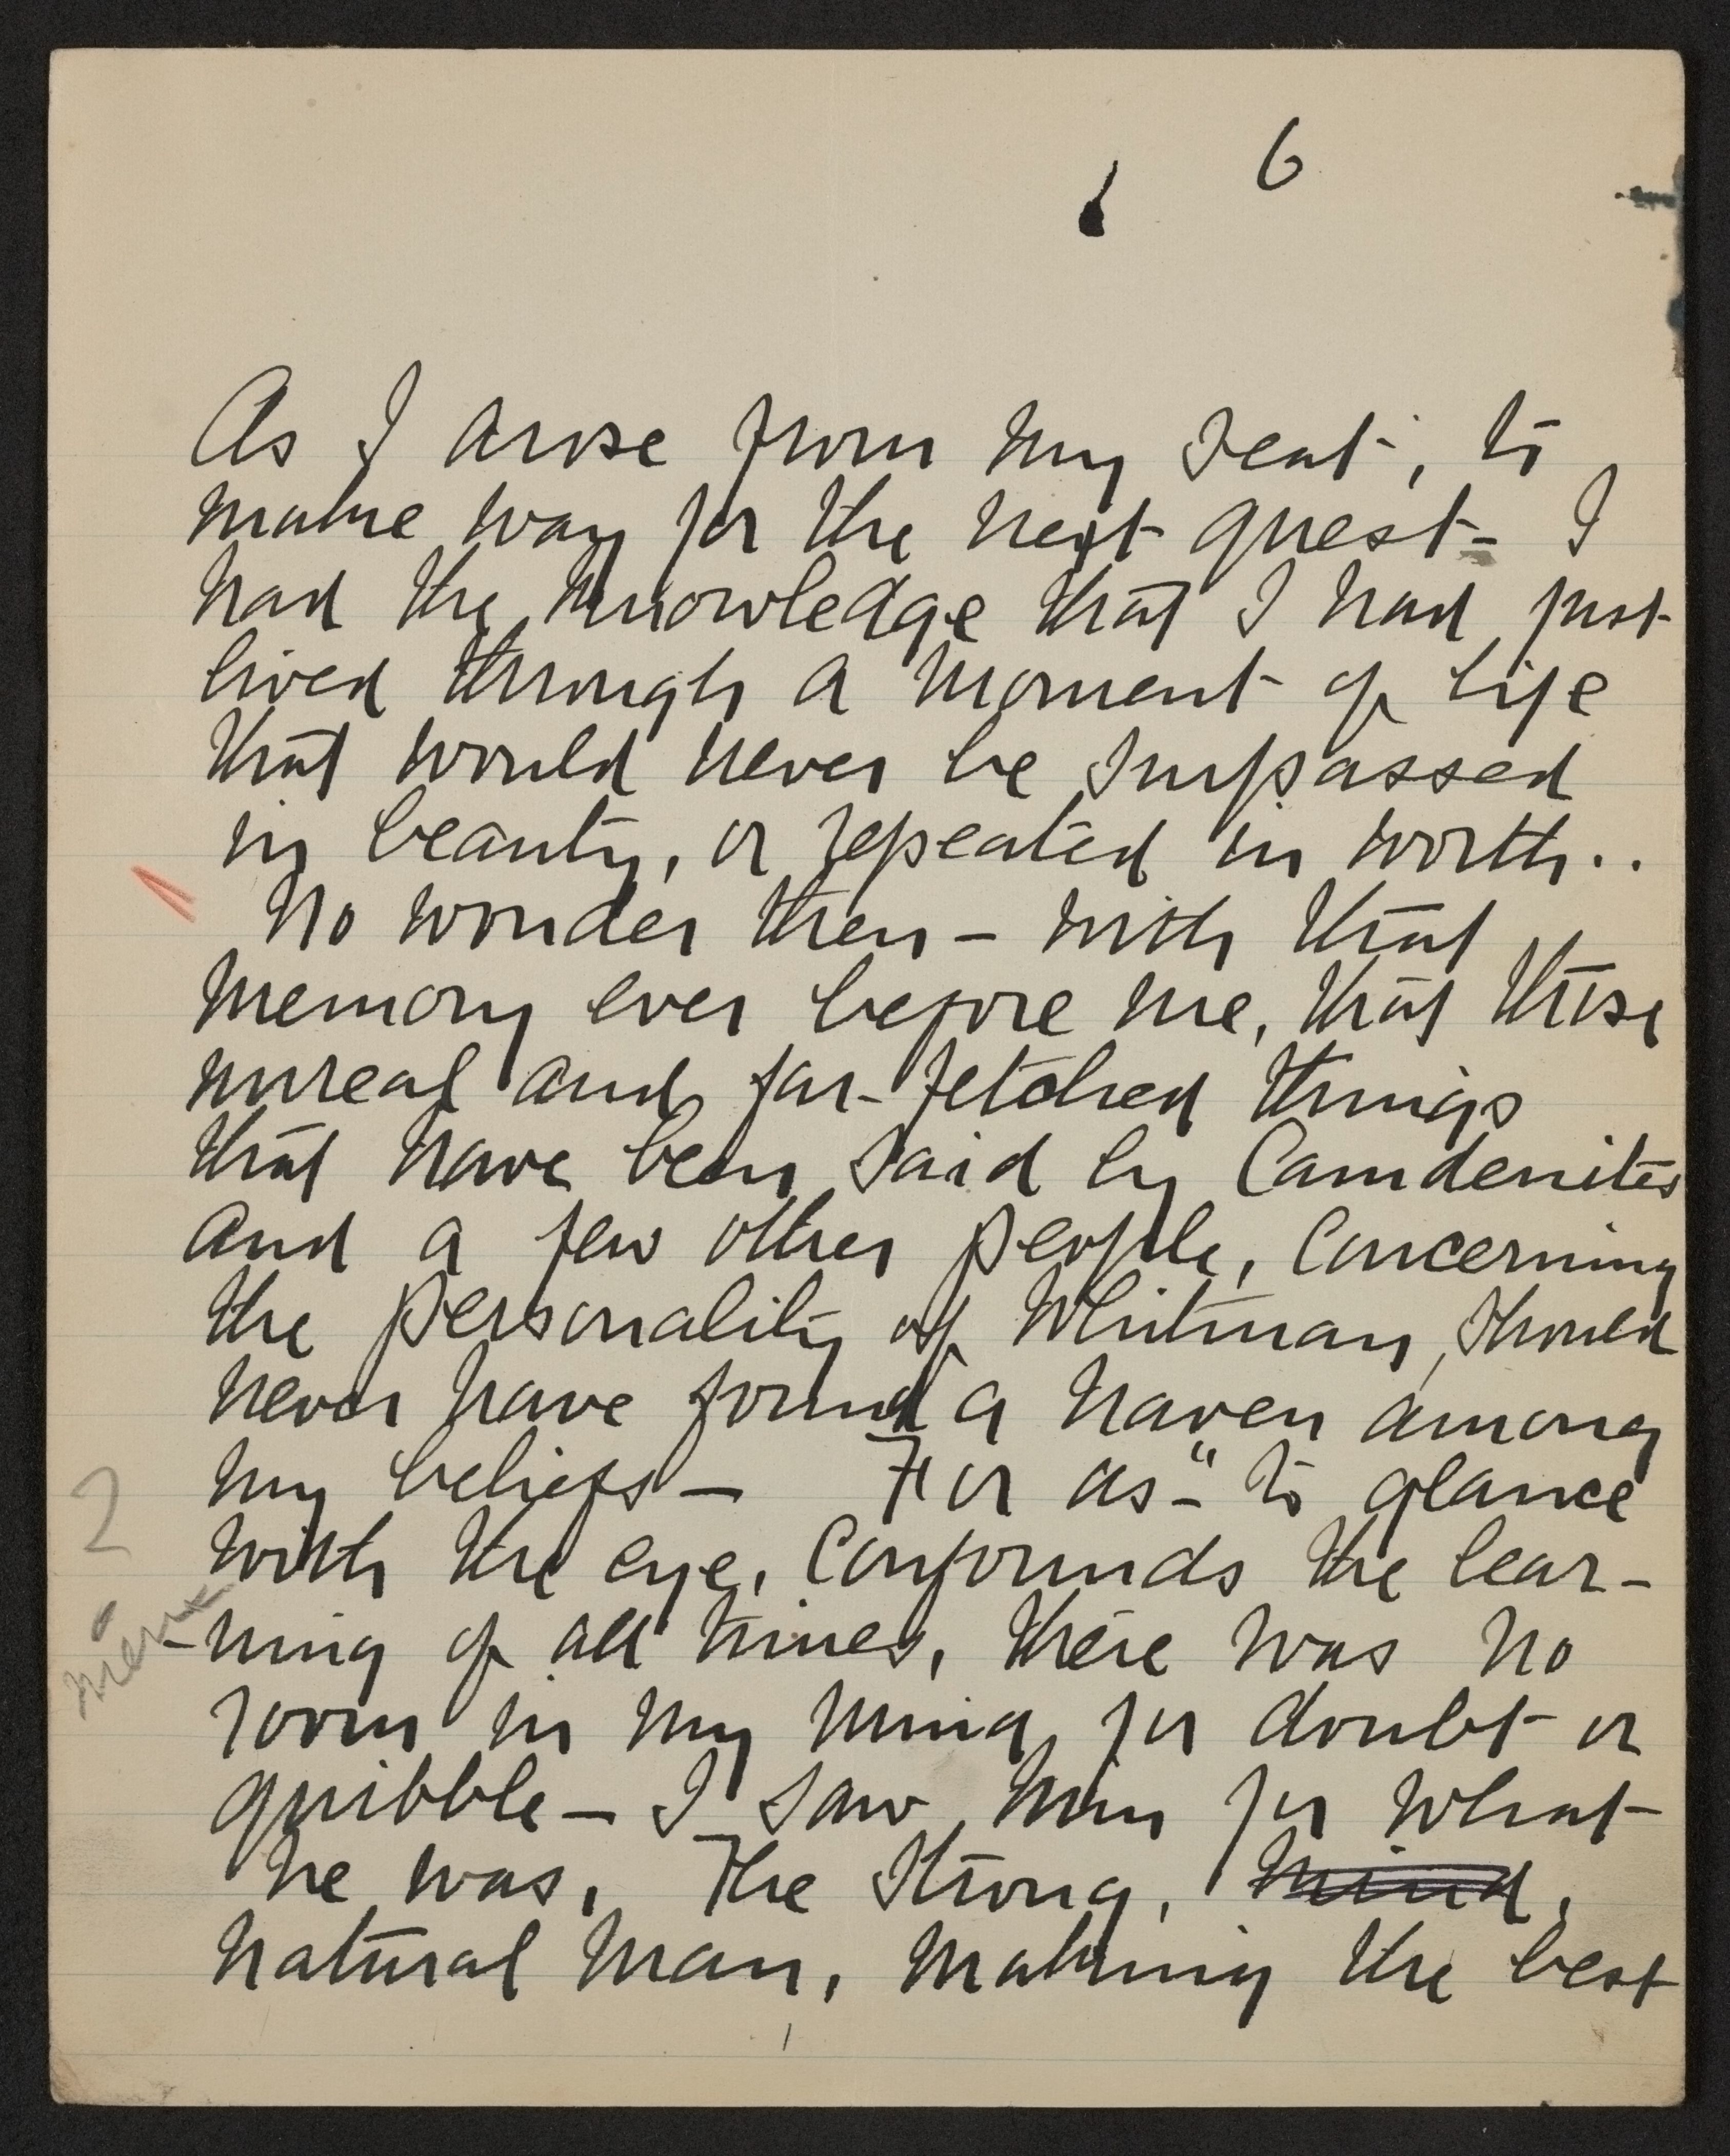 6
As I arose from my seat, to
make way for the next guest - I
had the knowledge that I had just
lived through a moment of life
that would never be surpassed
in beauty, or repeated in worth..
No wonder then - with that
memory ever before me, that those
unreal and far-fetched things
that have been said by Camdenites
and a few other people, concerning
the personality of Whitman, should
never have found a haven among
my beliefs — For as - "to glance
with the eye, confounds the lear-
-ning of all times, there was no
room in my mind for doubt or
quibble — I saw him for what
he was, The strong, mind,
natural man, making the best
?